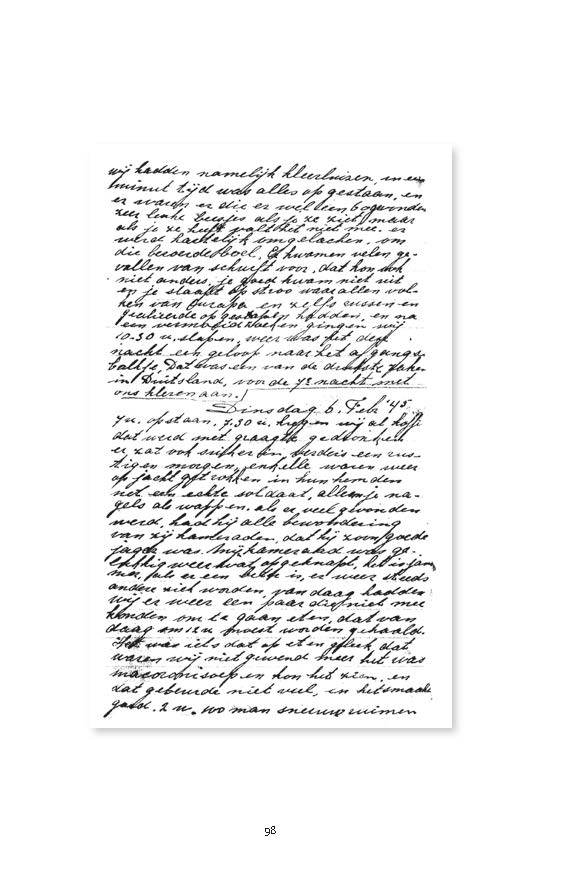 wij hadden namelijk kleerluizen, in een
minut tijd was alles op gestaan, en
er waren er die er wel een 60 vonden
zeer linke beesjes als je ze ziet, maar
als je ze heeft valt het niet mee. er
werd hartelijk omgelachen, om
die beroerde boel. Er kwamen velen ge-
vallen van schurft voor, dat kon ook
niet anders, je goed kwam niet uit
en je slaapt op stroo waar allen vol-
ken van Europa en zelfs russen en
op hadden, en na
een gingen wij
10.30 u. slapen, weer was het den
nacht een geloop naar het afgangs-
balkje, Dat was een van de drukste zaken
in Duitsland, voor de 7e nacht met
ons kleren aan.
Dinsdag 6. Feb '45
7 u. opstaan, 7.30 u. kregen wij al koffi
dat werd met graagte gedronken
er zat ook suiker in, verders een rus-
tigen morgen, enkelle waren weer
op jacht getrokken in hun hemden
net een echte soldaat, alleen je na-
gels als wappen. als er veel gevonden
werd, had hij alle bewondering
van zij kameraden, dat hij zoon goede
jager was. Mij kameraad was ge-
lukkig weer wat opgeknapt, het is jam
mer, als er een beter is, er weer steeds
andere ziek worden, van daag hadden
wij er weer een paar die niet mee
konden om te gaan eten, dat van
daag om 12 u moest worden gehaald.
Het was iets dat op eten geleek, dat
waren wij niet gewend meer het was
macoronisoep en kon het zien, en
dat gebeurde niet veel, en het smaakte
goed. 2 u. wo man sneeuwruimen
98